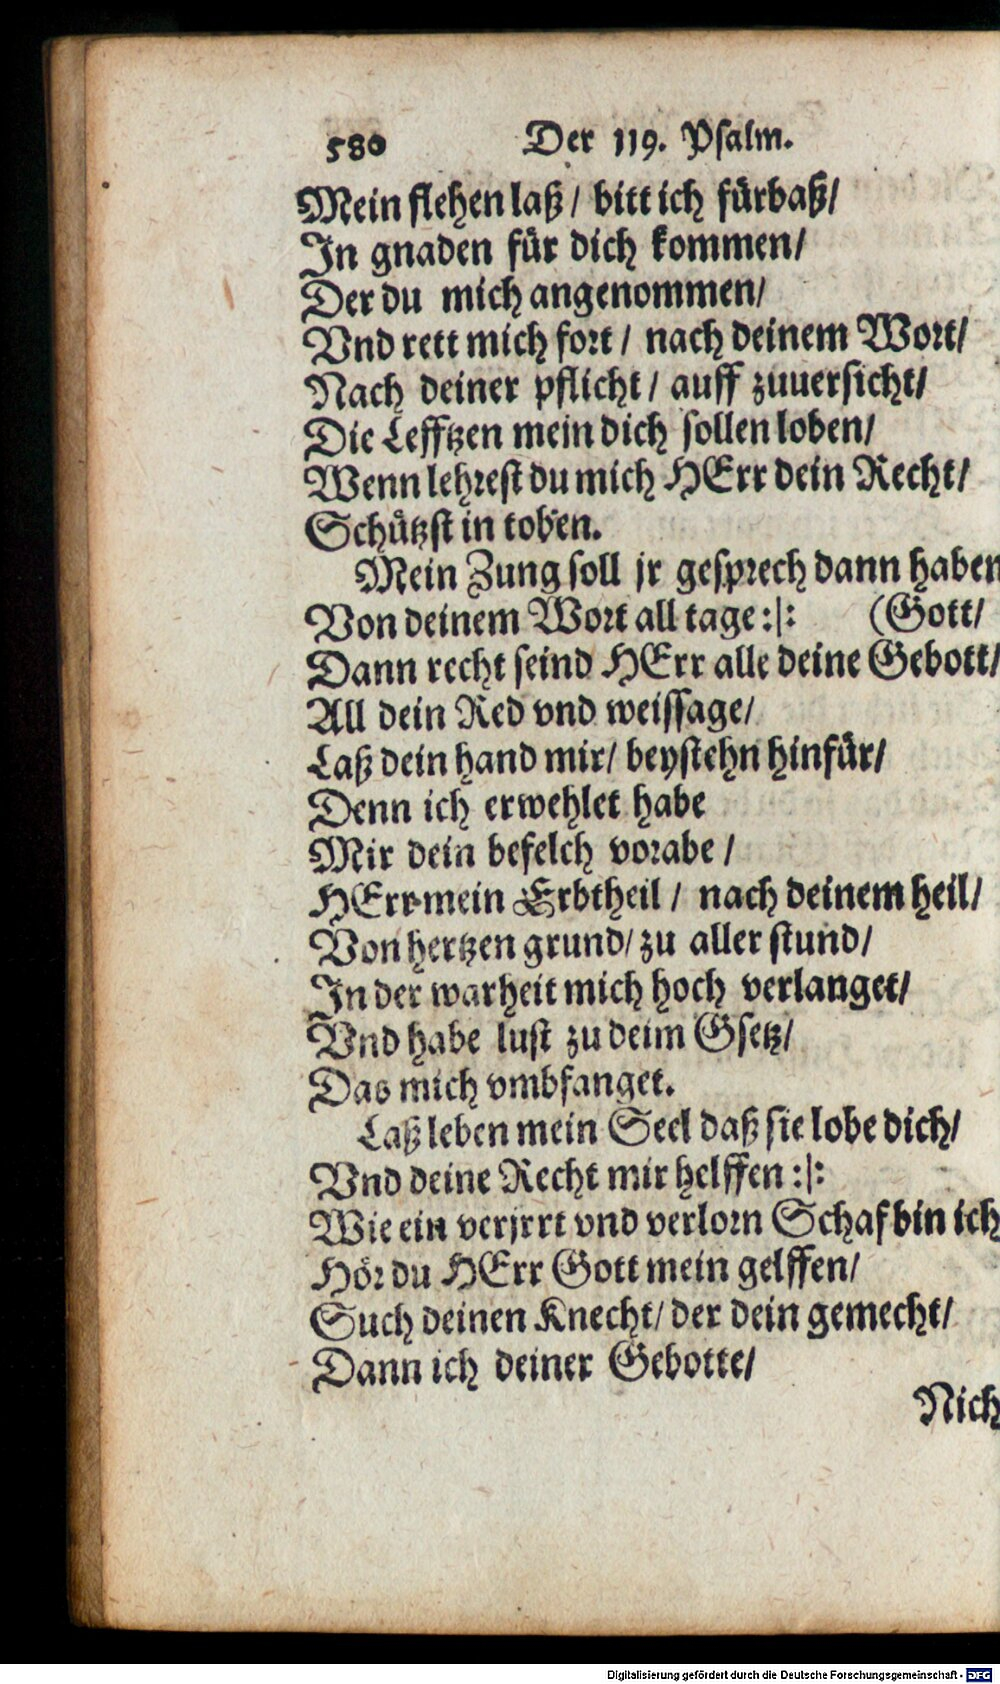 580 Der 119. Psalm.
Mein flehen laß / bitt ich fürbaß/
In gnaden für dich kommen/
Der du mich angenommen/
Vnd rett mich fort / nach deinem Wort/
Nach deiner pflicht / auff zuuersicht/
Die Lefftzen mein dich sollen loben/
Wenn lehrest du mich HErr dein Recht/
Schützst in toben.
Mein Zung soll jr gesprech dann haben
Von deinem Wort all tage :|: (Gott/
Dann recht seind HErr alle deine Gebott/
All dein Red vnd weissage/
Laß dein hand mir/ beystehn hinfür/
Denn ich erwehlet habe
Mir dein befelch vorabe /
HErr mein Erbtheil / nach deinem heil/
Von hertzen grund/ zu aller stund/
In der warheit mich hoch verlanget/
Vnd habe lust zu deim Gsetz/
Das mich vmbfanget.
Laß leben mein Seel daß sie lobe dich/
Vnd deine Recht mir helffen :|:
Wie ein verjrrt vnd verlorn Schaf bin ich
Hör du HErr Gott mein gelffen/
Such deinen Knecht/ der dein gemecht/
Dann ich deiner Gebotte/
Nich
Digitalisierung gefördert durch die Deutsche Forschungsgemeinschaft - DFG